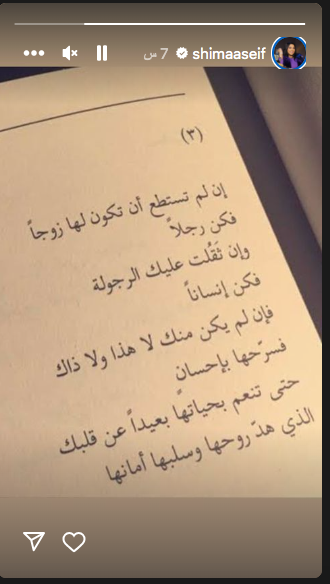 shimaaseif 7 س
(٣)
إن لم تستطع أن تكون لها زوجاً
فكن رجلاً
وإن ثَقُلت عليك الرجولة
فكن إنساناً
فإن لم يكن منك لا هذا ولا ذاك
فسرّحها بإحسان
حتى تنعم بحياتها بعيداً عن قلبك
الذي هدّ روحها وسلبها أمانها